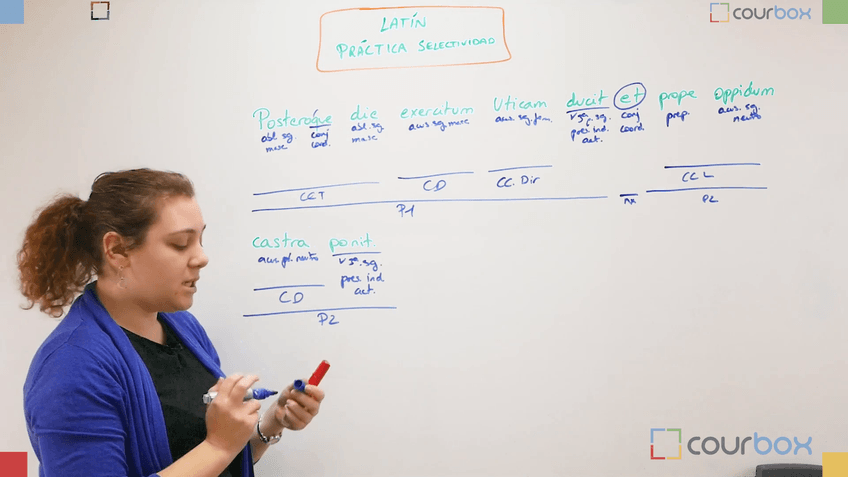 courbox
LATÍN
PRÁCTICA SELECTIVIDAD
Posteroque die exercitum Uticam ducit et prope oppidum
abl. sg. masc conj coord. abl. sg. masc acus sg masc acus. sg. fem. v 3ª. sg. pres ind. act. conj coord. prep. acus. sg. neutro
CCT CD CC. Dir CC L
P1 nx P2
castra ponit.
acus. pl. neutro v 3ª. sg. pres. ind. act.
CD
P2
courbox